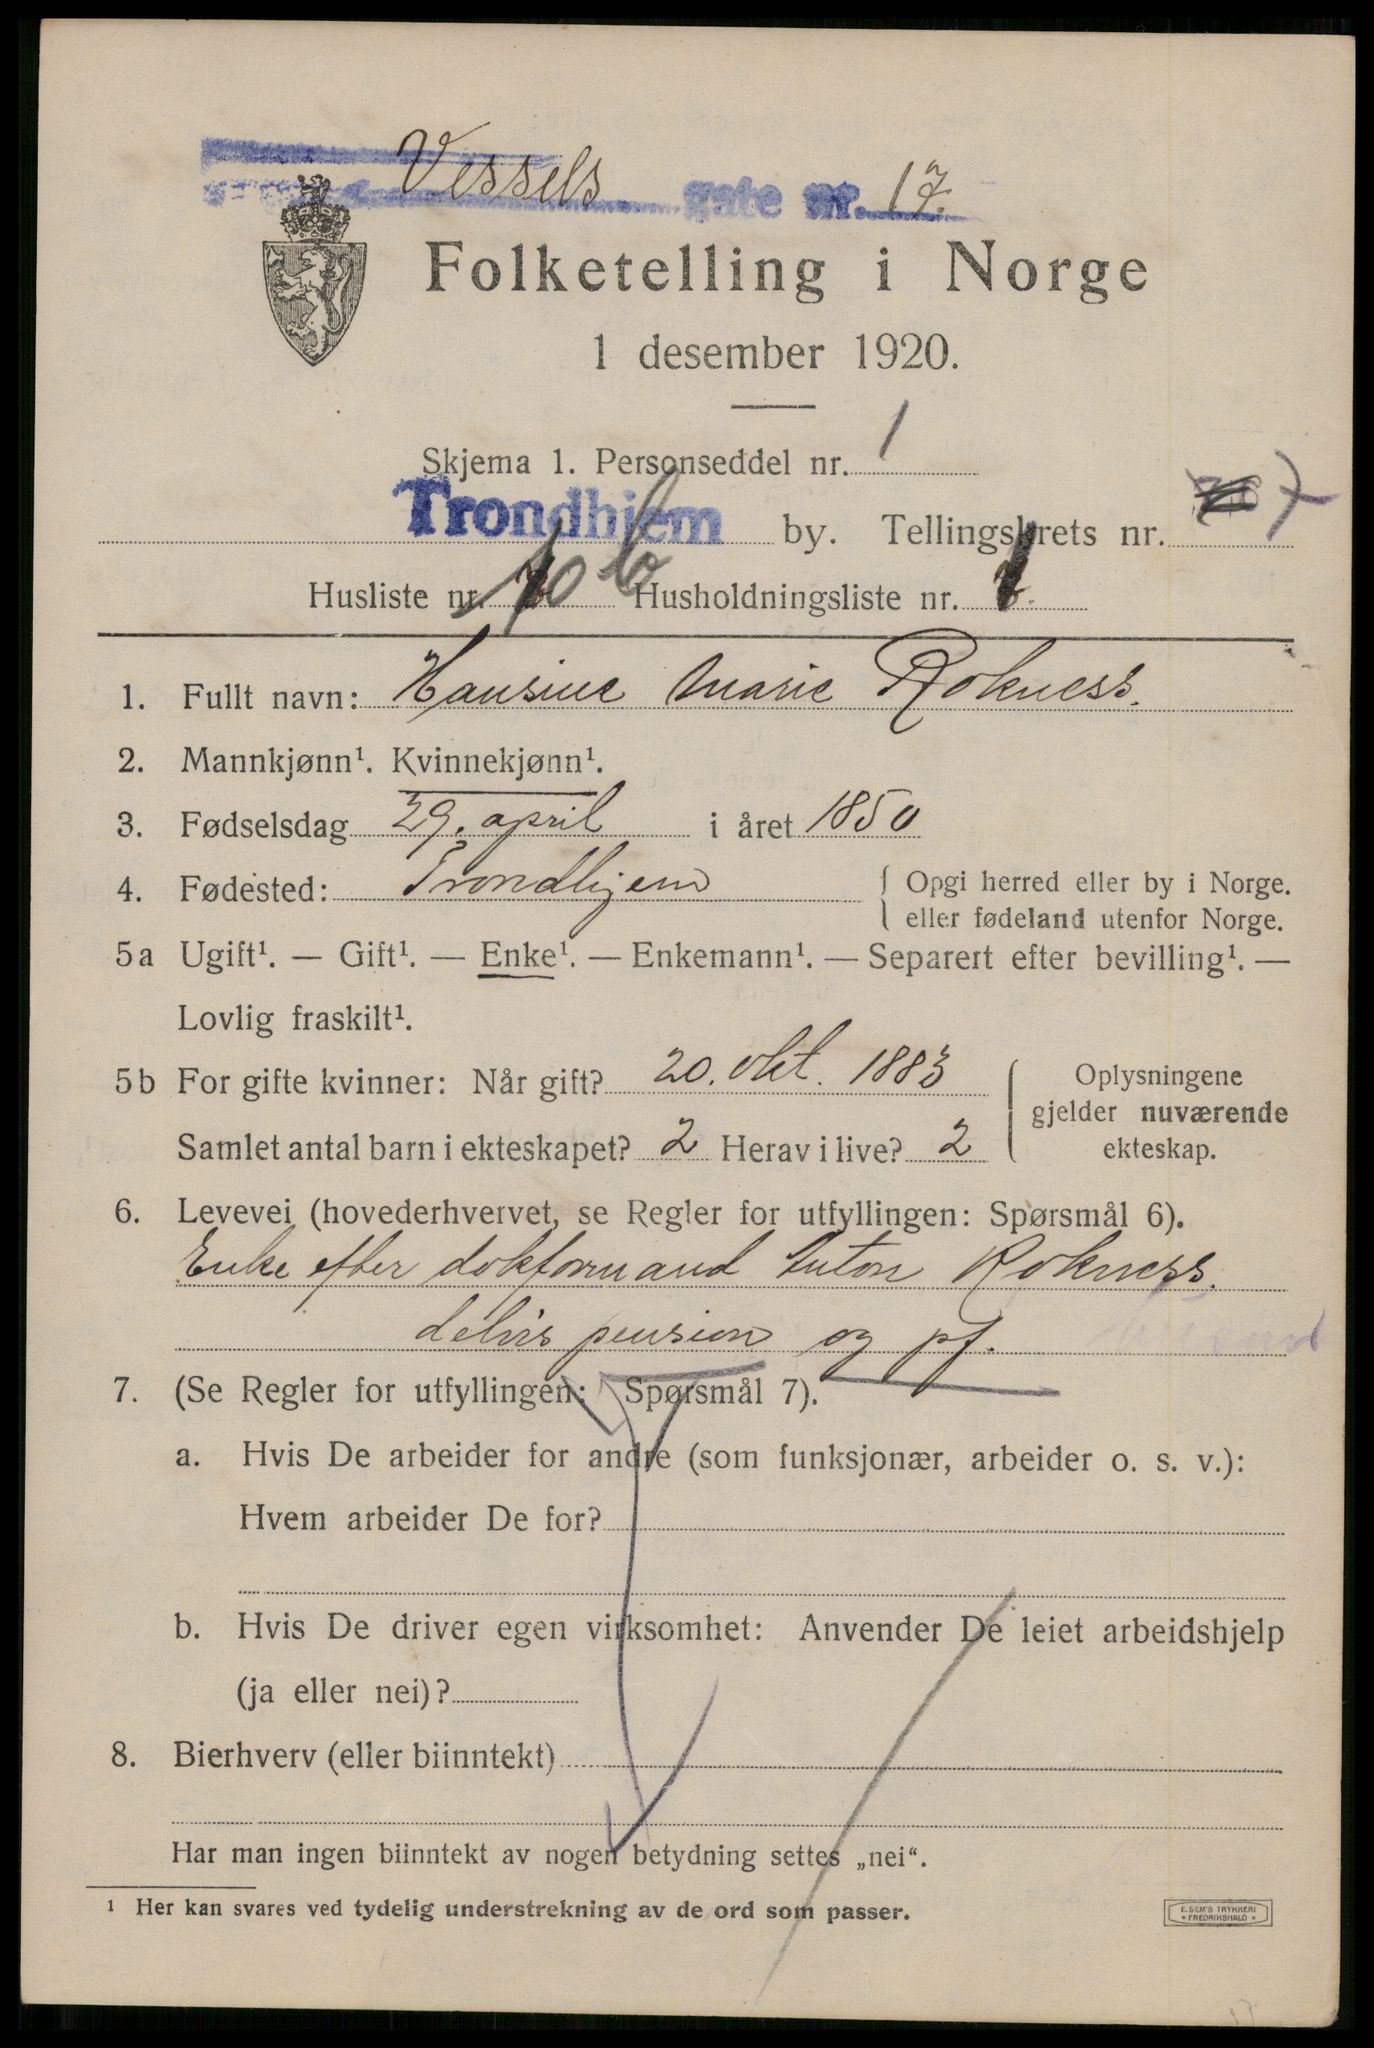 Vessels gate nr. 17.
Folketelling i Norge
1 desember 1920.
Skjema 1. Personseddel nr. 1
Trondhjem by. Tellingskrets nr. 7
Husliste nr. 10 b Husholdningsliste nr. 1
1. Fullt navn: Hansine Marie Rokness.
2. Mannkjønn¹. Kvinnekjønn¹.
3. Fødselsdag 29. april i året 1850
4. Fødested: Trondhjem { Opgi herred eller by i Norge.
eller fødeland utenfor Norge.
5a Ugift¹. — Gift¹. — Enke¹. — Enkemann¹. — Separert efter bevilling¹. —
Lovlig fraskilt¹.
5b For gifte kvinner: Når gift? 20. okt. 1883
Samlet antal barn i ekteskapet? 2 Herav i live? 2
Oplysningene
gjelder nuværende
ekteskap.
6. Levevei (hovederhvervet, se Regler for utfyllingen: Spørsmål 6).
Enke efter dokformand Anton Rokness.
delvis pension og pf.
7. (Se Regler for utfyllingen: Spørsmål 7).
a. Hvis De arbeider for andre (som funksjonær, arbeider o. s. v.):
Hvem arbeider De for?
b. Hvis De driver egen virksomhet: Anvender De leiet arbeidshjelp
(ja eller nei)?
8. Bierhverv (eller biinntekt)
Har man ingen biinntekt av nogen betydning settes „nei“.
1 Her kan svares ved tydelig understrekning av de ord som passer.
E. SEM'S TRYKKERI
• FREDRIKSHALD •